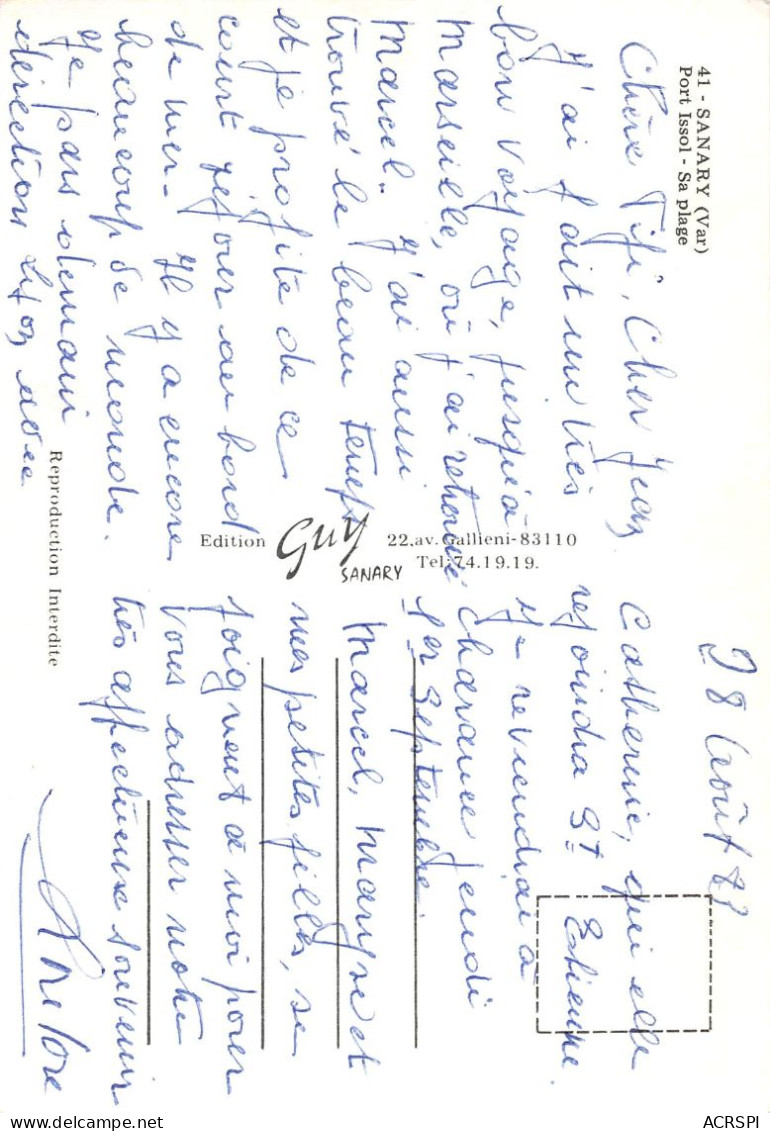 41 - SANARY (Var)
Port Issol - Sa plage
D 8 août 88
Chère Fifi, Cher Jean
J'ai fait un très
bon voyage, jusqu'à
Marseille, où j'ai retrouvé
Marcel. J'ai aussi
trouvé le beau temps
et je profite de ce
court séjour au bord
de mer. Il y a encore
beaucoup de monde.
Je pars demain
direction Lyon avec
Catherine, qui elle
rejoindra St Etienne.
Je reviendrai à
Charance jeudi
1er Septembre.
Marcel, Maryse et
mes petites filles, se
joignent à moi pour
vous adresser notre
très affectueux souvenir
Edition Guy SANARY 22,av.Gallieni-83110
Tel:74.19.19.
Reproduction Interdite
ACRSPI